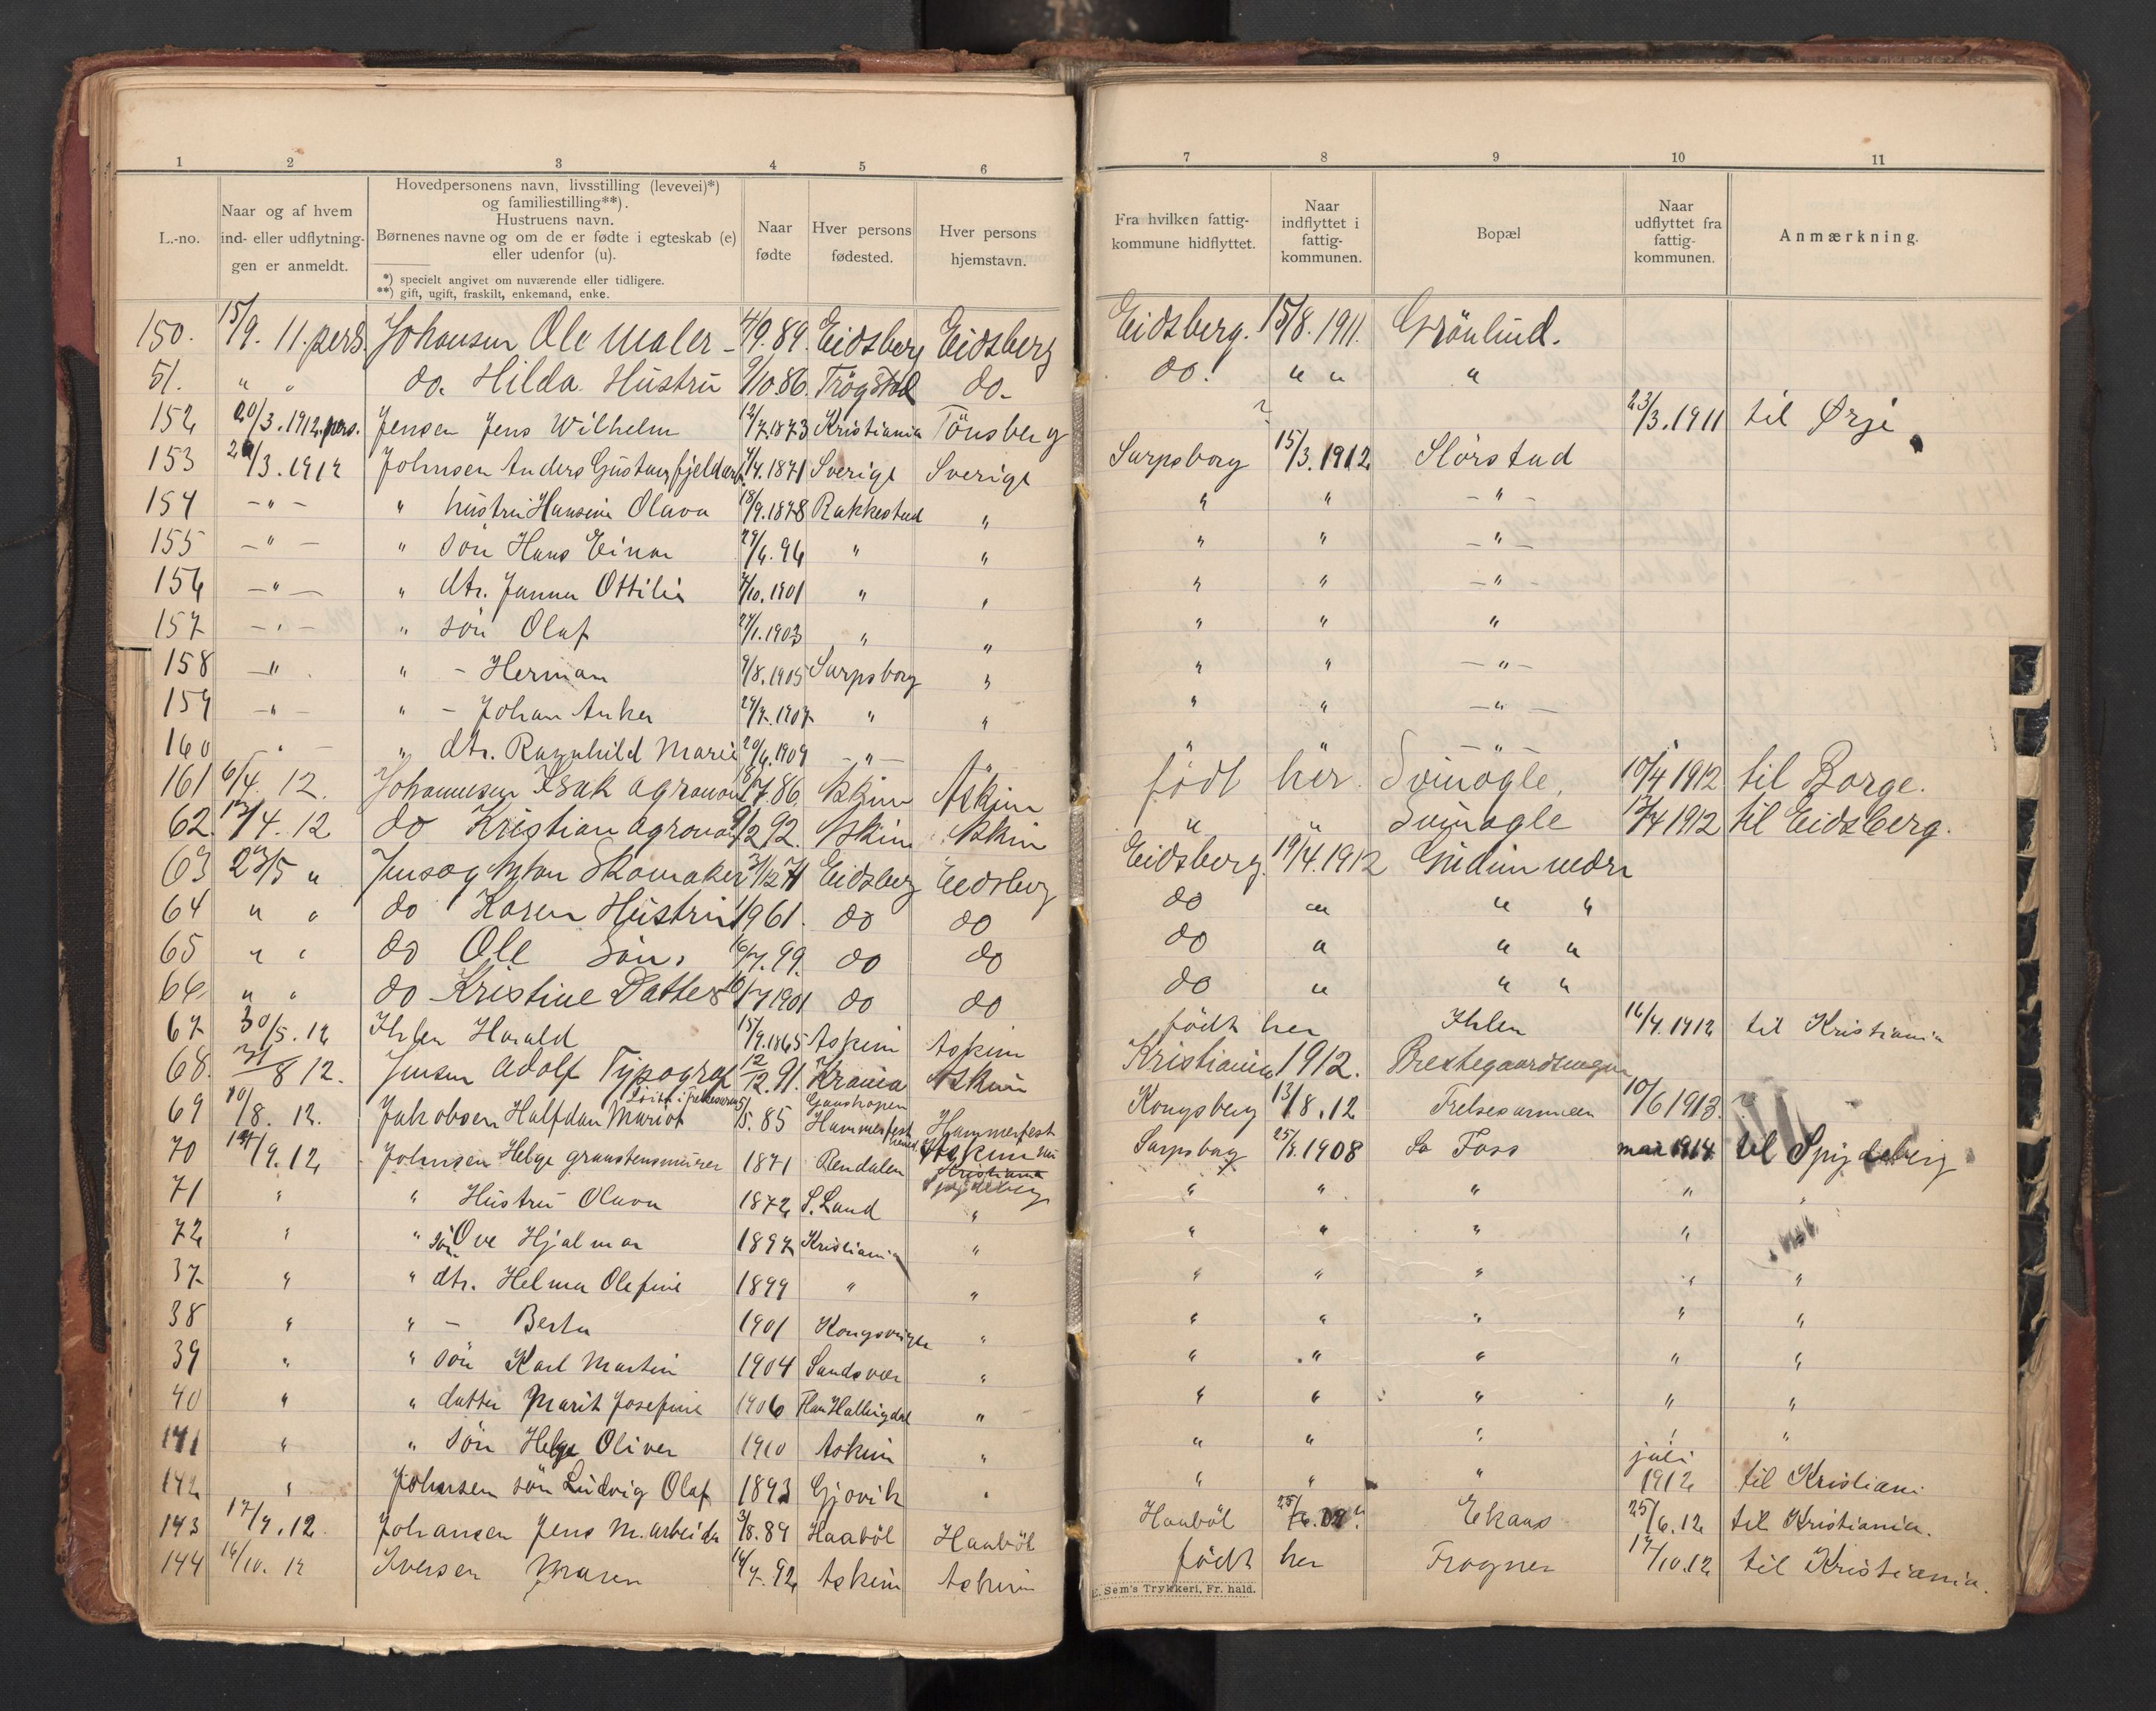 1 2 3 4 5 6 7 8 9 10 11
L.-no.
Naar og af hvem
ind- eller udflytnin-
gen er anmeldt.
Hovedpersonens navn, livsstilling (levevei)*)
og familiestilling**).
Hustruens navn.
Børnenes navne og om de er fødte i egteskab (e)
eller udenfor (u).
*) specielt angivet om nuværende eller tidligere.
**) gift, ugift, fraskilt, enkemand, enke.
Naar
fødte
Hver persons
fødested.
Hver persons
hjemstavn.
Fra hvilken fattig-
kommune hidflyttet.
Naar
indflyttet i
fattig-
kommunen.
Bopæl
Naar
udflyttet fra
fattig-
kommunen.
Anmærkning.
150. 15/9. 11. pers. Johansen Ole Maler - 4/9.89. Eidsberg Eidsberg Eidsberg. 15/8. 1911. Grönlund.
51. " " do. Hilda Hustru 9/10.86. Trögstad do. do. " " "
152 20/3.1912. pers. Jensen Jens Wilhelm 12/7.1873 Kristiania Tönsberg ? 23/3.1911 til Ørje
153 /3.1912 Johnsen Anders Gustav fjeldarb. /4.1871 Sverige Sverige Sarpsborg 15/3.1912 Slörstad
154 - " - " hustru Hansine Olava 18/9.1878 Rakkestad " " " - " -
155 - " - " sön Hans Einar 29/6.96 " " " " - " -
156 - " - " dtr. Janna Ottilia /10.1901 " " " " - " -
157 - " - " sön Olaf 27/1.1903 " " " " "
158 - " " - Herman 9/8.1905 Sarpsborg " " " - " -
159 - " - " - Johan Anker 29/7.1907 " " " " - " -
160 " - " dtr. Ragnhild Marie 20/6.1909 - " - " " " - " -
161 6/4. 12. Johannesen Isak agronom /7.86. Askim Askim födt her. Svinögle, 10/4 1912 til Borge.
62. 12/4. 12 do Kristian agronom 9/2 92. Askim Askim " " Svinögle 12/4 1912 til Eidsberg.
63 23/5 " Skomaker 31/12 71 Eidsberg Eidsberg Eidsberg. 19/4.1912 Gudim nedre
64 " " do Karen Hustru 1961. do do do " " "
65 " " do Ole Sön. 16/7.99. do do do " " "
66 " " do Kristine Datter 10/7 1901 do do do " " "
67 30/5.12 Ihlen Harald 15/9.1865 Askim Askim födt her Ihlen 16/4.1912 til Kristiania
68. 31/8 12. Jensen Adolf Typograf 12/12.91. Krania Askim Kristiania 1912. Prestegaardsengen
69 20/8. 12. Jakobsen Halfdan Mariot Löitn. i frelsesarmen 5/5.85 Hammerfest Hammerfest Kongsberg 13/8.12 Frelsesarmeen 10/6 1913. ?
70 14/9.12 Johnsen Helge graastensmurer 1871 Rendalen Askim Kristiania Spydeberg Sarpsborg 25/8.1908 So Foss mai 1914 til Spydeberg
71 " " Hustru Olava 1872 S. Land " " " " " "
72 " " sön Ove Hjalmar 1897 Kristiania " " " " "
37 " " dtr. Helma Olefine 1899 " " " " " " "
38 " " - Berta 1901 Kongsvinger " " " " " "
39 " " sön Karl Martin 1904 Sandsvær " " " " " "
40 " " datter Marit Josefine 1906 Hallingdal " " " " " "
141 " " sön Helge Oliver 1910 Askim " " " " " "
142 " Johnsen sön Ludvig Olaf 1893 Gjovik " " " " juli 1912 til Kristiani
143 17/9.12. Johansen Jens M. arbeider 3/8.89 Haaböl Haaböl Haaböl 25/ Ekaas 25/6.12 til Kristiania.
144 16/10.12 Iversen Maren 14/7.92 Askim Askim födt her Frogner 17/10.12 til Kristiania.
E. Sem's Trykkeri, Fr. hald.